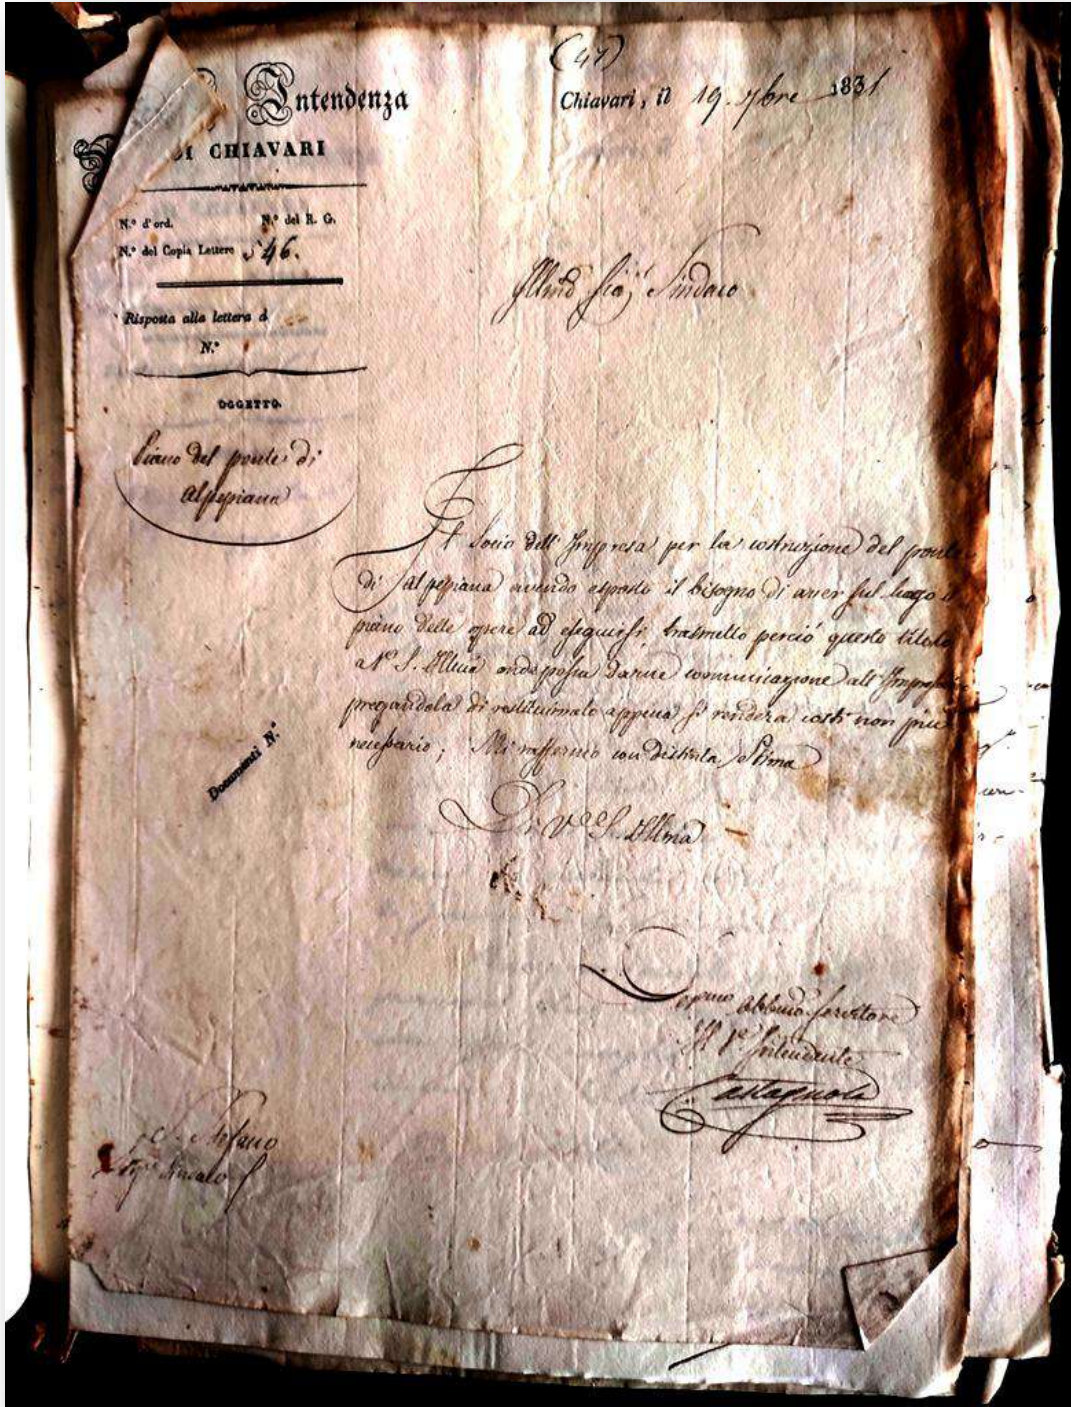 (47)
Intendenza
DI CHIAVARI
Chiavari, il 19. 7bre 1831
N.° d'ord. N.° del R. G.
N.° del Copia Lettere 546.
Risposta alla lettera d
N.°
OGGETTO.
Piano del ponte di
Alpepiana
Illmo Sig.r Sindaco
Il Socio dell'Impresa per la costruzione del ponte
di Alpepiana avendo esposto il bisogno di aver sul luogo il
piano delle opere ad eseguirsi, trasmetto perciò questo
a V.a S. Illma onde possa darne comunicazione all'Impresa
pregandola di restituirmelo appena si renderà costì non più
necessario; Mi raffermo con distinta Stima
Documenti N.°
Di V.a S. Illma
Devmo Obblmo Servitore
Intendente
Castagnola
S. Stefano
Sig.r Sindaco